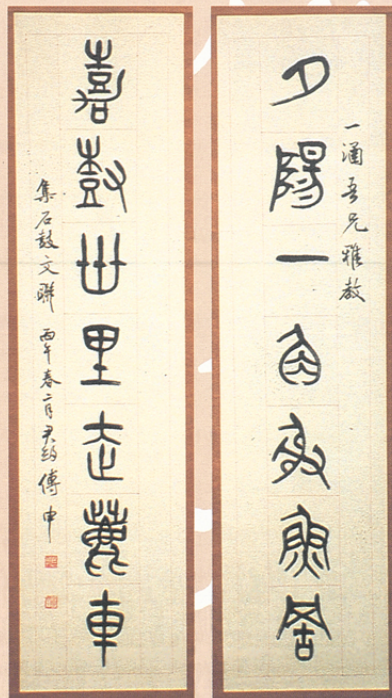 一涵吾兄雅教
夕陽一角魚
嘉樹卅里走車
集石鼓文聯 丙午春二月君約傅申